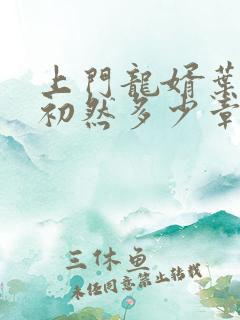 上門龍婿葉
初然多少章
三休鱼
未经同意禁止转载